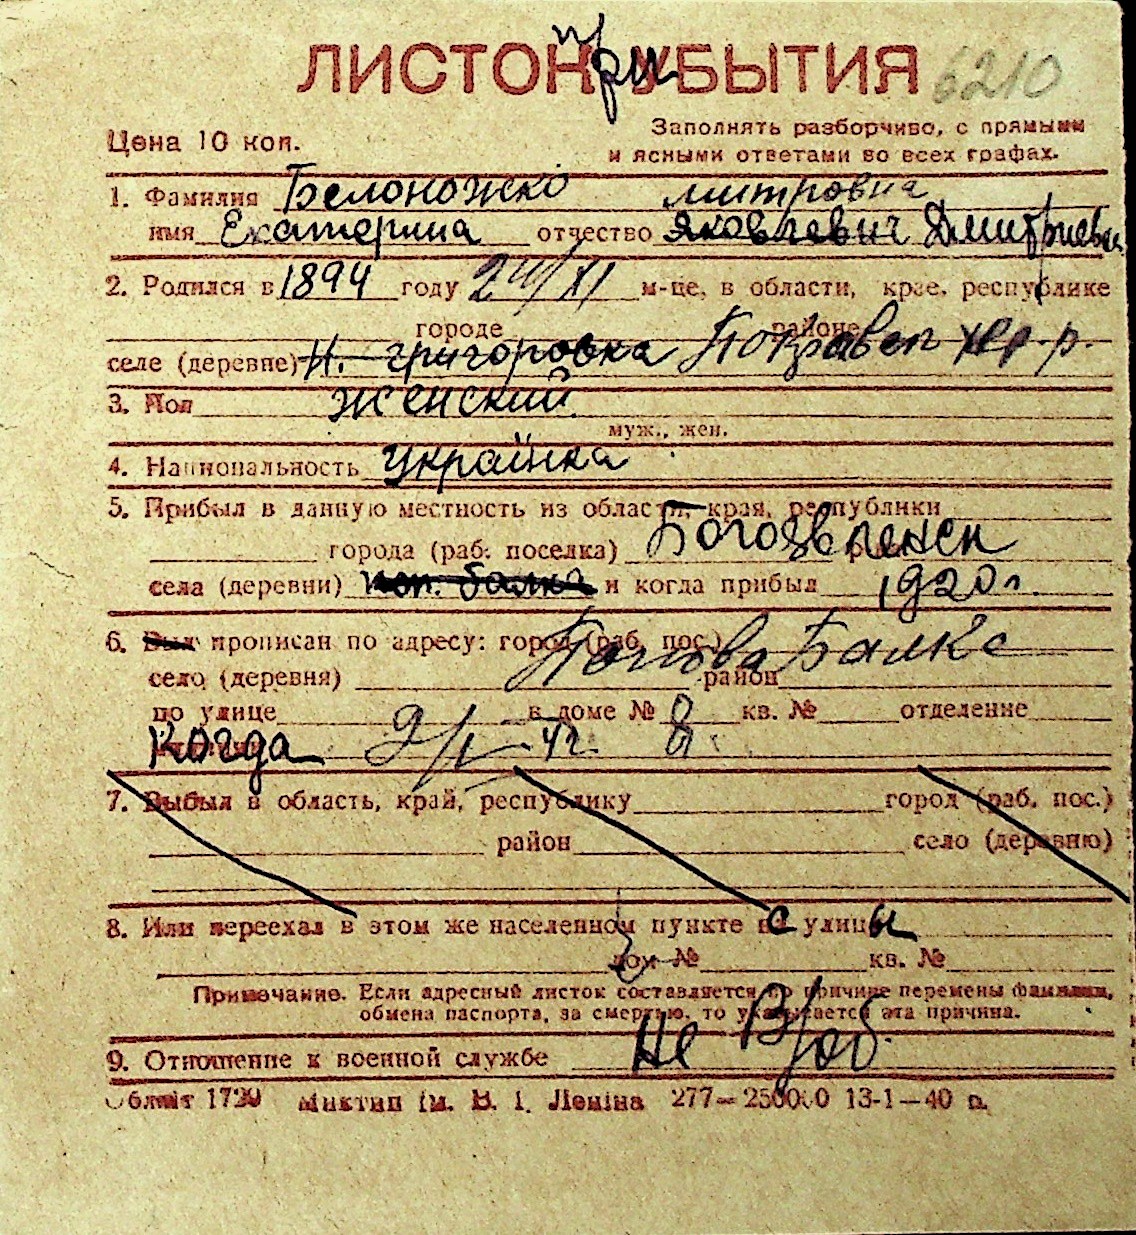 ЛИСТОК при УБЫТИЯ 6210
Цена 10 коп.
Заполнять разборчиво, с прямыми
и ясными ответами во всех графах.
1. Фамилия Белоножко митровна
имя Екатерина отчество Яковлевич Дмитриевн
2. Родился в 1894 году 24/XI м-це, в области, крае, республике
городе районе
селе (деревне) Н. григоровка
3. Пол женский
муж., жен.
4. Национальность украінка
5. Прибыл в данную местность из области, края, республики
города (раб. поселка) Богоявленск
села (деревни) поп. балка и когда прибыл 1920 г.
6. Был прописан по адресу: город (раб. пос.) Попова Балке
село (деревня) район
по улице в доме № 8 кв. № отделение
Когда
7. Выбыл в область, край, республику город (раб. пос.)
район село (деревню)
8. Или переехал в этом же населенном пункте с улицы
дом № кв. №
Примечание. Если адресный листок составляется по причине перемены фамилии,
обмена паспорта, за смертью, то указывается эта причина.
9. Отношение к военной службе Не В/об.
Облліт 1720 Миктип ім. В. І. Леніна 277—250000 13-1—40 р.